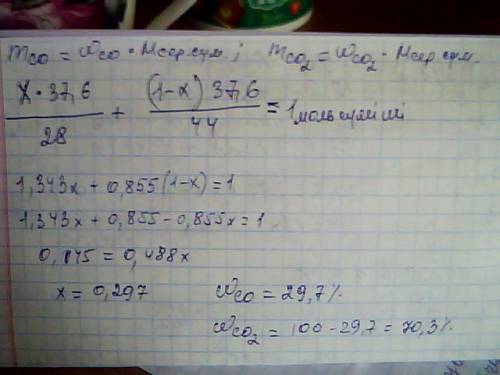 m CO = ω CO · M сер.сум. ; m CO₂ = ω CO₂ · M сер.сум.
x · 37,6 / 28 + (1-x) 37,6 / 44 = 1 моль суміші
1,343x + 0,855(1-x) = 1
1,343x + 0,855 - 0,855x = 1
0,145 = 0,488x
x = 0,297 ω CO = 29,7%
ω CO₂ = 100 - 29,7 = 70,3%